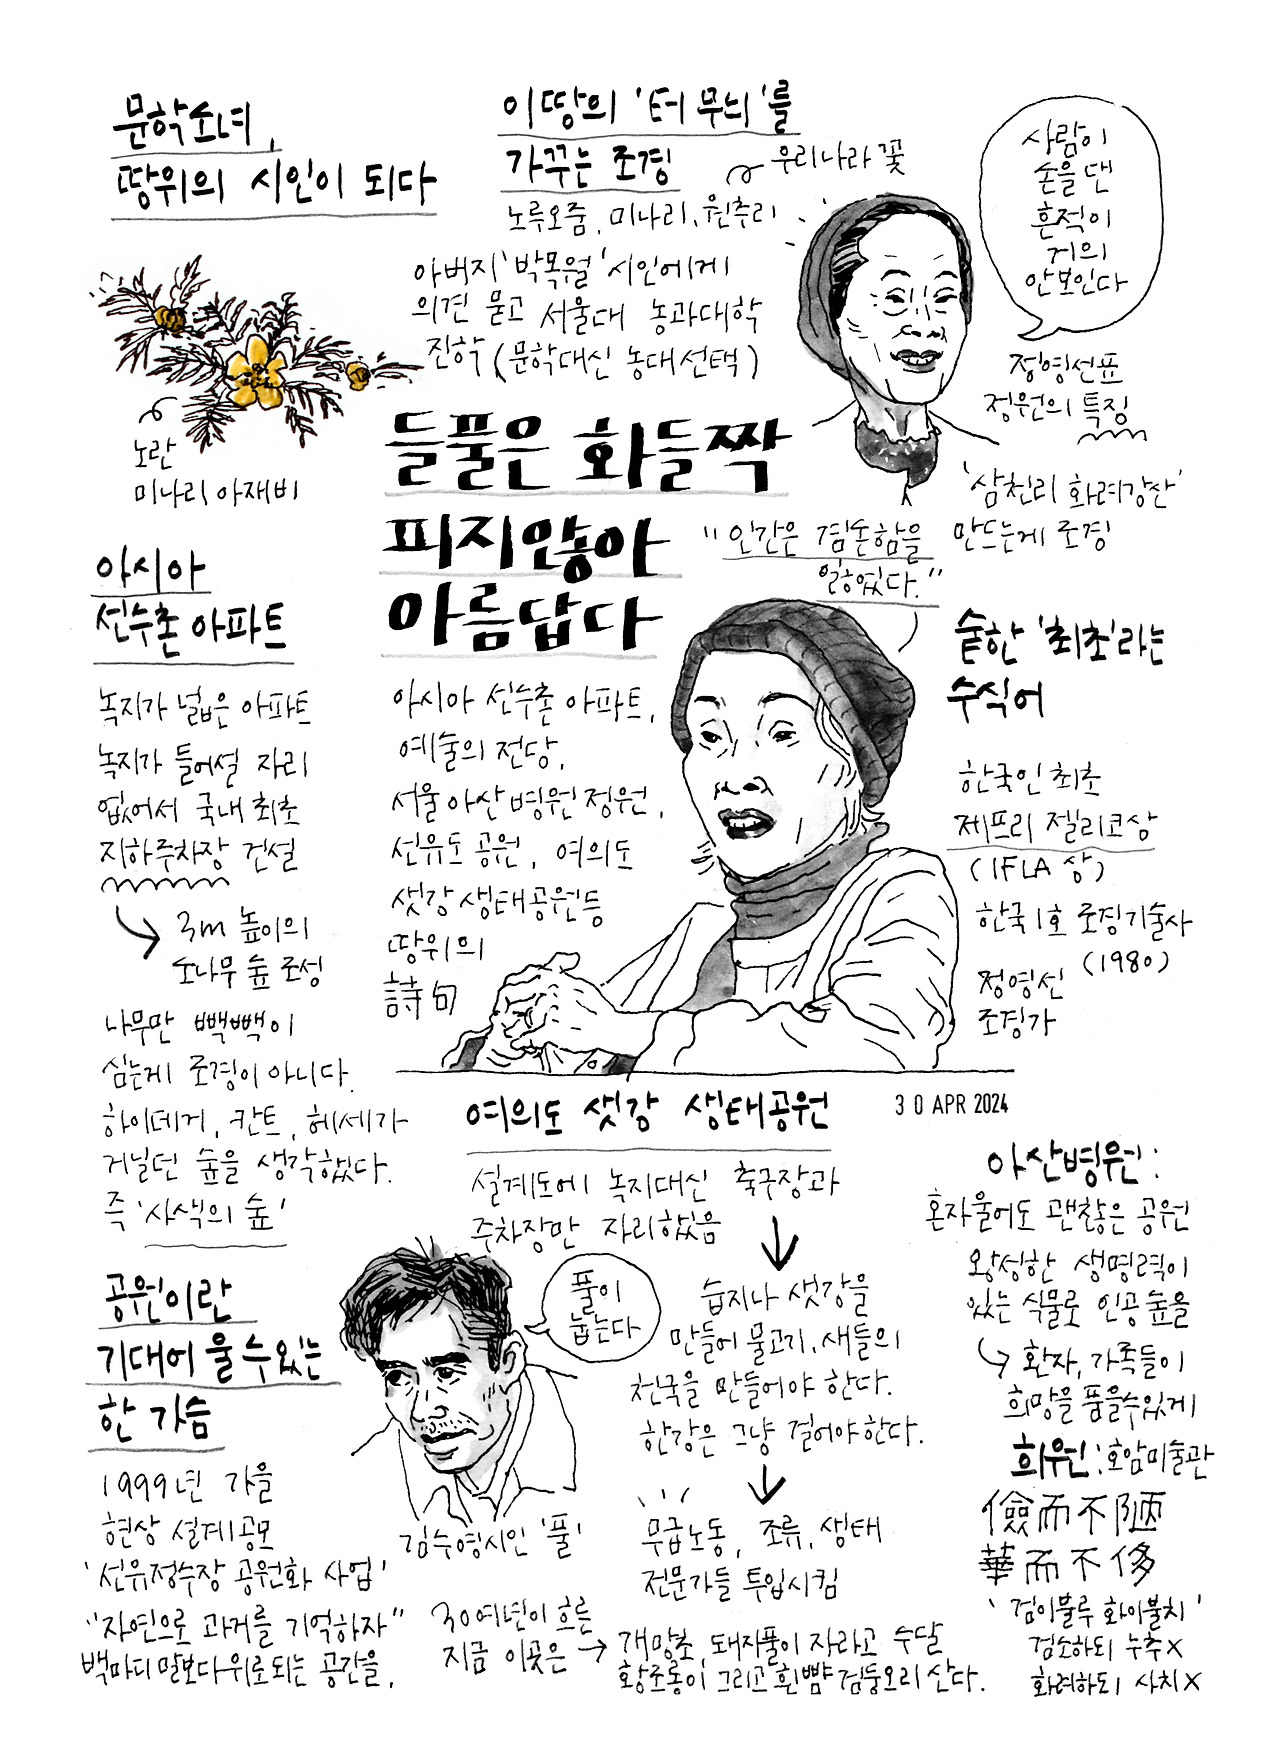 문학소녀,
땅위의 시인이 되다
이 땅의 '터무늬'를
가꾸는 조경
우리나라 꽃
노루오줌, 미나리, 원추리
아버지 '박목월' 시인에게
의견 묻고 서울대 농과대학
진학 (문학대신 농대선택)
사람이
손을 댄
흔적이
거의
안보인다
정영선표
정원의 특징
'삼천리 화려강산'
만드는게 조경
노란
미나리 아재비
들풀은 화들짝
피지않아
아름답다
"인간은 겸손함을
잃었다."
아시아
선수촌 아파트
녹지가 넓은 아파트
녹지가 들어설 자리
없어서 국내 최초
지하주차장 건설
3m 높이의
소나무 숲 조성
나무만 빽빽이
심는게 조경이 아니다.
하이데거, 칸트, 헤세가
거닐던 숲을 생각했다.
즉 '사색의 숲'
아시아 선수촌 아파트,
예술의 전당,
서울 아산 병원 정원,
선유도 공원, 여의도
샛강 생태공원등
땅위의
詩句
숱한 '최초'라는
수식어
한국인 최초
제프리 젤리코상
(IFLA 상)
한국 1호 조경기술사
(1980)
정영선
조경가
30 APR 2024
여의도 샛강 생태공원
설계도에 녹지대신 축구장과
주차장만 자리했음
습지나 샛강을
만들어 물고기, 새들의
천국을 만들어야 한다.
한강은 그냥 걸어야한다.
무급노동, 조류, 생태
전문가들 투입시킴
아산병원:
혼자울어도 괜찮은 공원
왕성한 생명력이
있는 식물로 인공 숲을
환자, 가족들이
희망을 품을수있게
희원: 호암미술관
儉而不陋
華而不侈
'검이불루 화이불치'
검소하되 누추X
화려하되 사치X
공원이란
기대어 울 수 있는
한 가슴
1999년 가을
현상 설계공모
'선유정수장 공원화 사업'
"자연으로 과거를 기억하자"
백마디 말보다 위로되는 공간을.
풀이
눕는다
김수영시인 '풀'
30여년이 흐른
지금 이곳은
개망초, 돼지풀이 자라고 수달
황조롱이 그리고 흰뺨검둥오리 산다.